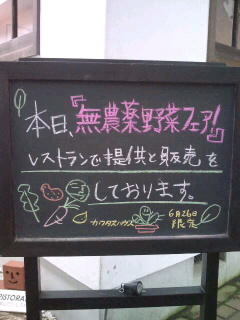 本日、『無農薬野菜フェア!』
レストランで提供と販売を
しております。
6月26日
限定